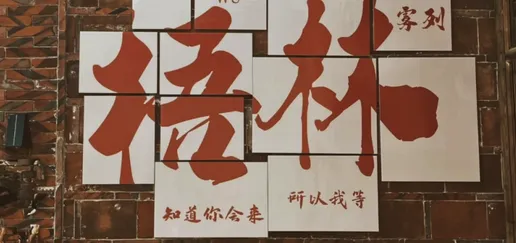 雾列
梧林
知道你会来
所以我等